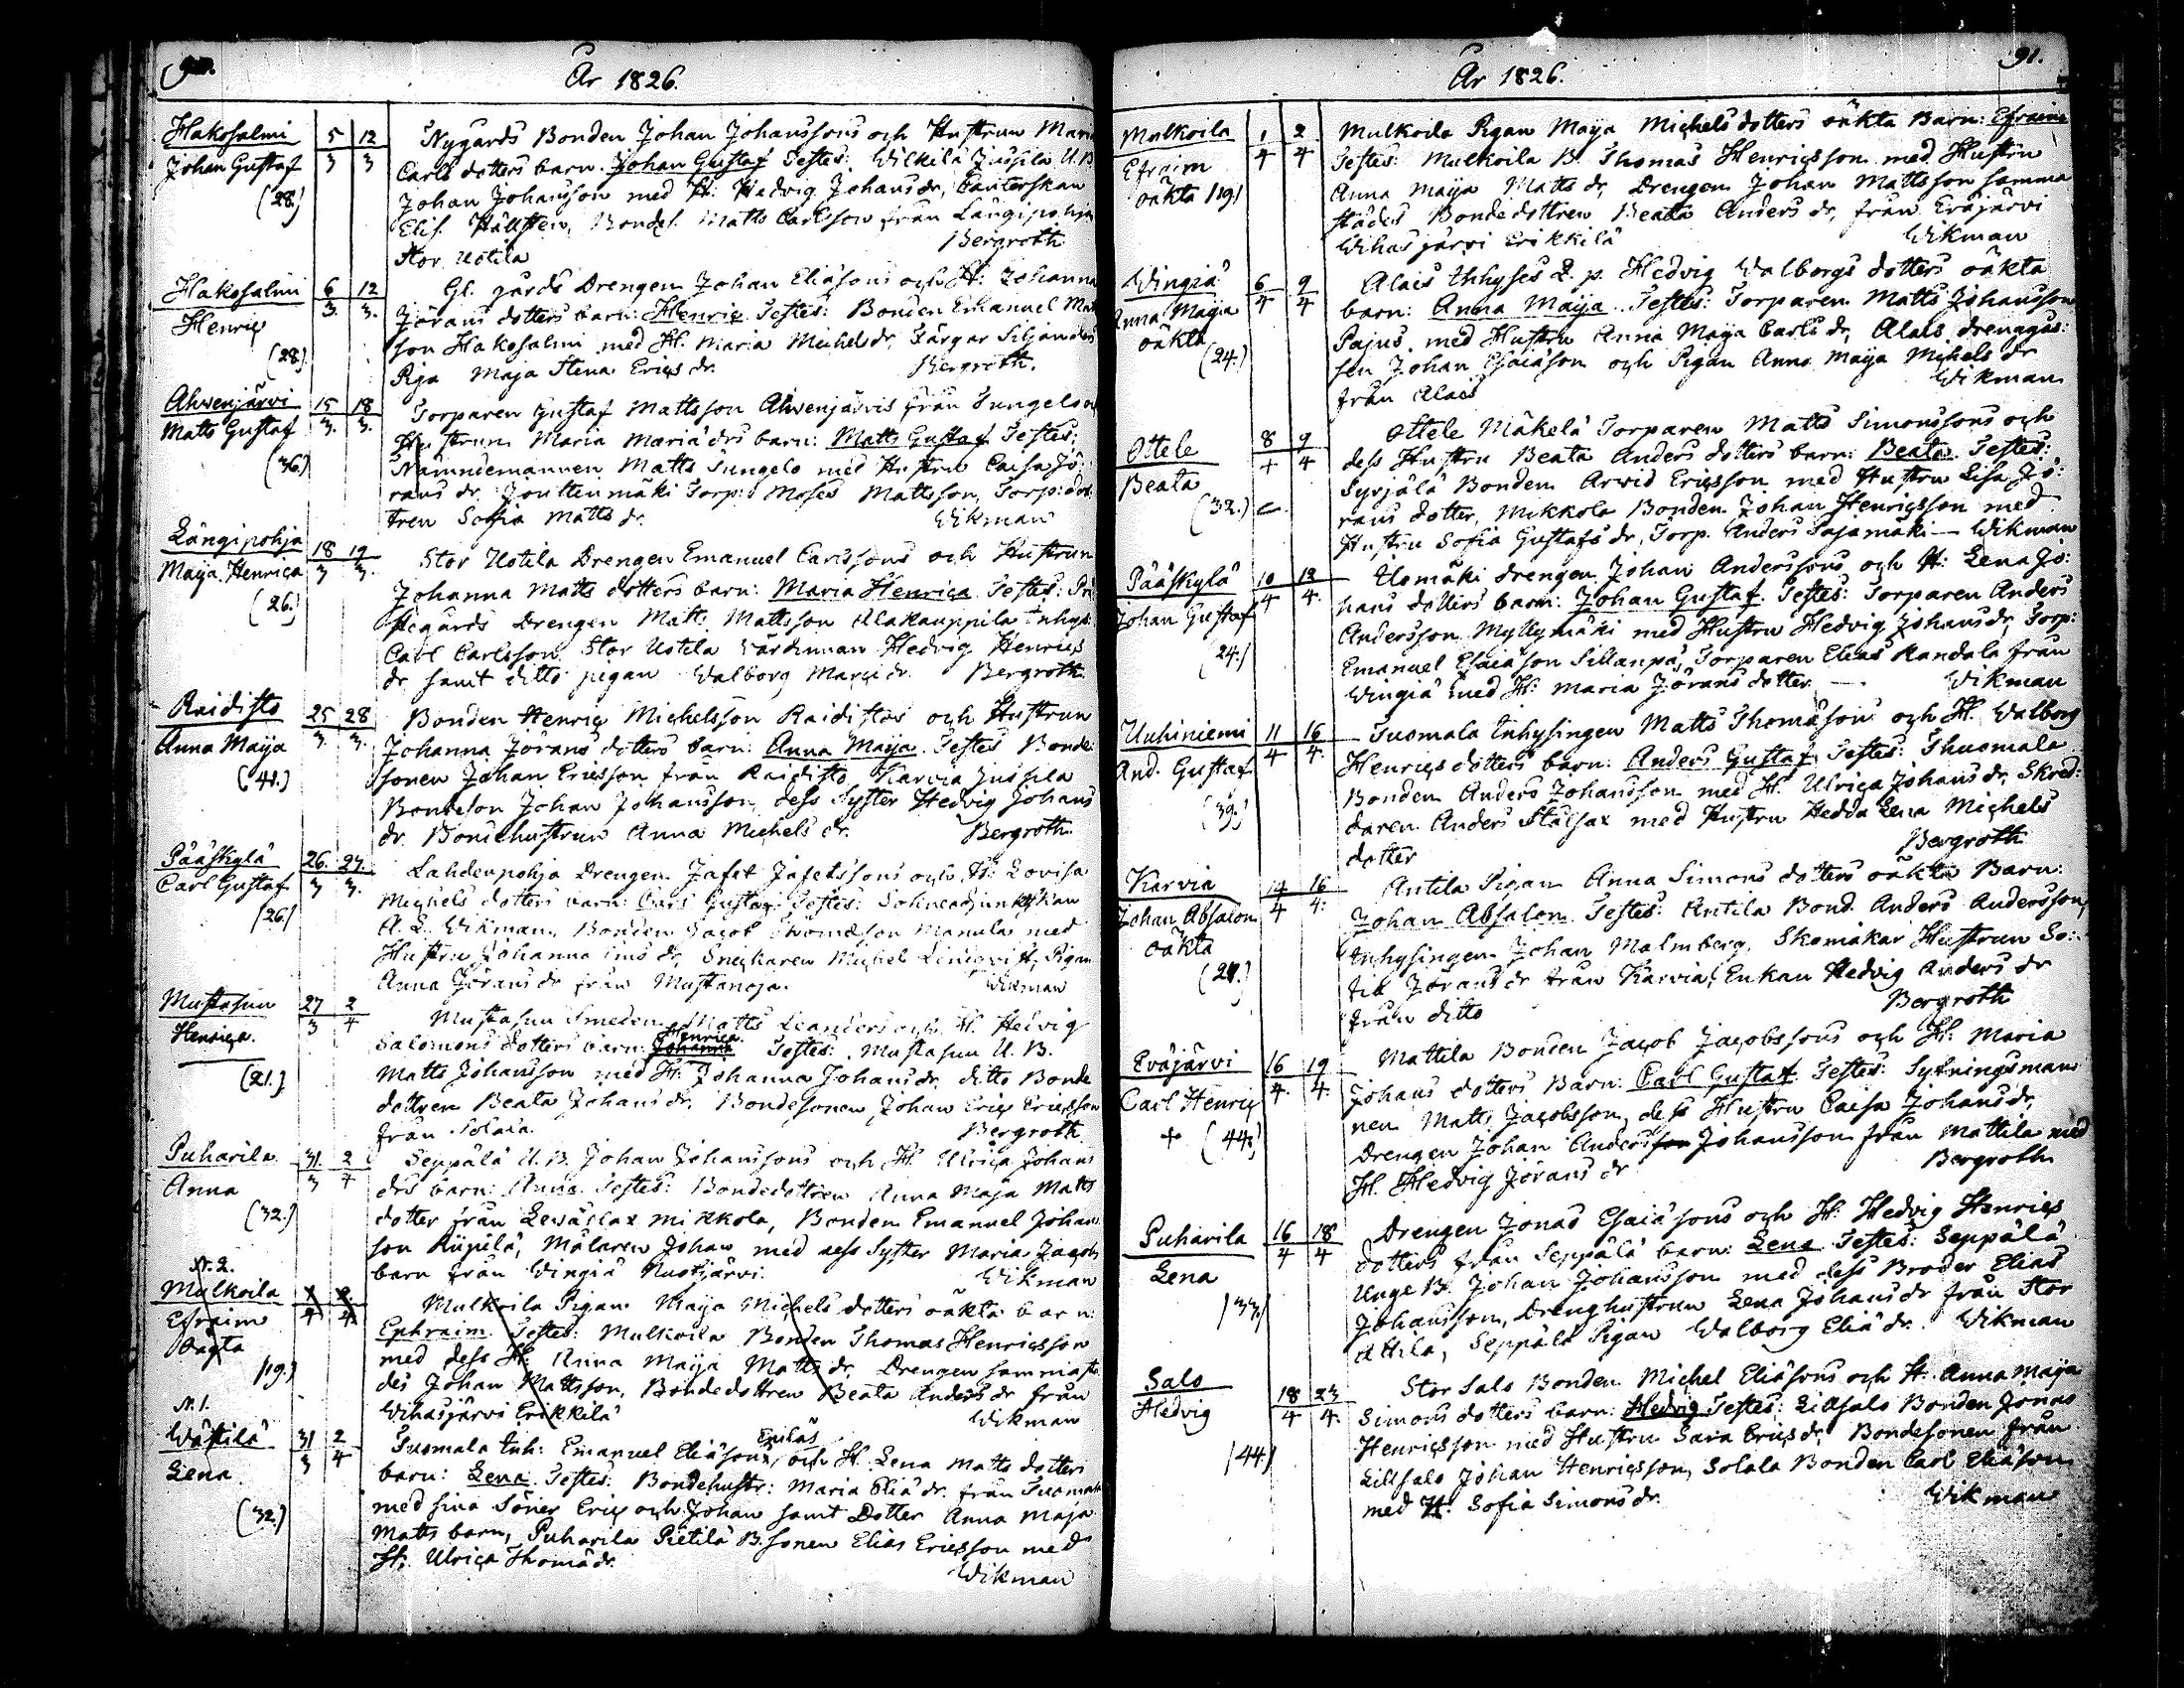 90.
År 1826.
Hakosalmi 5/3 12/3
Johan Gustaf
(28.)
Nygårds Bonden Johan Johanssons och Hustrun Maria
Carls dotters barn. Johan Gustaf Testes: Wilkilä Jussila U.B.
Johan Johansson med H: Hedvig Johans dr,
Elis. Hällsten, Bondes. Matts Carlsson från Långipohja
Stor Uotila Bergroth
Hakosalmi 6/3. 12/3.
Henric
(28.)
Gl. gårds Drengen Johan Eliäsons och H: Johanna
Jörans dotters barn: Henric Testes: Bonden Emanuel Mats
son Hakosalmi med H. Maria Michels dr, Färgar Siljanders
Piga Maja Stena Erics dr. Bergroth.
Ahvenjärvi 15/3. 18/3.
Matts Gustaf
(36.)
Torparen Gustaf Mattsson Ahvenjärvis från Sungelo och
Hustrun Maria Mariä drs barn: Matts Gustaf Testes:
Nämndemannen Matts Sungelo med Hustru Caisa Jö-
rans dr, Jouttenmäki Torp: Moses Mattsson, Torp: dot
tren Sofia Matts dr. Wikman
Långipohja 18/3 19/3.
Maija Henrica
(26.)
Stor Uotila Drengen Emanuel Carlssons och Hustrun
Johanna Matts dotters barn: Maria Henrica Testes: Pre
stegårds Drengen Matts Mattsson Alakauppila Inhys.
Carl Carlsson Stor Uotila Värdinnan Hedvig Henrics
dr samt ditto pigan Walborg Marci dr. Bergroth
Raidisto 25/3. 28/3.
Anna Maija
(41.)
Bonden Henric Michelsson Raidistos och Hustrun
Johanna Jörans dotters barn: Anna Maija Testes Bonde:
sonen Johan Ericsson från Raidisto, Karvia Jussila
Bondeson Johan Johansson, dess Syster Hedvig Johans
dr. Bondehustrun Anna Michels dr. Bergroth.
Pääskylä 26./3 27./3.
Carl Gustaf
(26.)
Lahdenpohja Drengen Jafet Jafetssons och H: Lovisa
Michels dotters barn: Carl Gustaf Testes:
A. L. Wikman, Bonden Jacob Thomasson Manula med
Hustru Johanna dr, Snickaren Michel Lindqvist, Pigan
Anna Jörans dr från Mustanoja. Wikman
Mustasuu 27/3 2/4
Henrica.
(21.)
Mustasuu Smeden Matts Leanders och H. Hedvig
Henrica
Salomons dotters barn: Johanna Testes: Mustasuu U. B.
Matts Johansson med H: Johanna Johans dr, ditto Bonde
dottren Beata Johans dr, Bondesonen Johan Eric Ericsson
från Solala. Bergroth
Puharila 31./3 2/4
Anna
(32.)
Seppälä U. B. Johan Johanssons och H. Ulrica Johans
drs barn: Anna Testes: Bondedottren Anna Maja Matts
dotter från Leväslax Mikkola, Bonden Emanuel Johans
son Riipilä, Målaren Johan med dess Syster Maria Jacobs
barn från Wingiä Ruotjärvi. Wikman
N. 2.
Mulkoila 1/4 2./4
Efraim
Oägta
(19.)
Mulkoila Pigan Maija Michels dotters oäkta barn:
Ephraim Testes: Mulkoila Bonden Thomas Henricsson
med dess H: Anna Maija Matts dr, Drengen sammaste
des Johan Mattsson, Bondedottren Beata Anders dr från
Wihasjärvi Erikkilä Wikman
N. 1.
Wästilä 31/3 2/4
Lena
(32.)
Tuomala Inh: Emanuel Eliäsons, och H. Lena Matts dotters
barn: Lena Testes: Bondehustr: Maria Eliä dr. från Tuomala
med sina Söner Eric och Johan samt Dotter Anna Maja
Matts barn, Puharila Pietilä B. sonen Elias Ericsson med
H: Ulrica Thomä dr. Wikman
91.
År 1826.
Mulkoila 1/4 2/4
Efraim
oäkta (19.)
Mulkoila Pigan Maija Michels dotters oäkta Barn: Efraim
Testes: Mulkoila B. Thomas Henricsson med Hustru
Anna Maija Matts dr, Drengen Johan Mattsson samma
städes Bondedottren Beata Anders dr, från Eräjärvi
Wihasjärvi Erikkilä Wikman
Wingiä 6/4 9/4
Anna Maija
oäkta
(24.)
Alais Inhyses Q. p. Hedvig Walborgs dotters oäkta
barn: Anna Maija. Testes: Torparen Matts Johansson
Pajus med Hustru Anna Maija Carls dr, Alais drenggås:
sen Johan Esaiäson och Pigan Anna Maija Michels dr
från Alais Wikman
Ottele 8/4 9/4
Beata
(32.)
Ottele Mäkelä Torparen Matts Simonssons och
dess Hustru Beata Anders dotters barn: Beata Testes:
Syrjälä Bonden Arvid Ericsson med Hustru Lisa Jö:
rans dotter, Mikkola Bonden Johan Henricsson med
Hustru Sofia Gustafs dr, Torp. Anders Sajamäki — Wikman
Pääskylä 10/4 12/4.
Johan Gustaf
(24.)
Uomäki drengen Johan Anderssons och H: Lena Jo:
hans dotters barn: Johan Gustaf. Testes: Torparen Anders
Andersson Myllymäki med Hustru Hedvig Johans dr, Torp:
Emanuel Esaiäson Sillanpä, Torparen Elias Randala från
Wingiä med H: Maria Jörans dotter — Wikman
Uuhiniemi 11/4 16/4.
And. Gustaf
(39.)
Tuomala Inhysingen Matts Thomäsons och H. Walborg
Henrics dotters barn: Anders Gustaf Testes: Thuomala
Bonden Anders Johansson med H. Ulrica Johans dr, Skred:
daren Anders Stålsax med Hustru Hedda Lena Michels
dotter Bergroth
Karvia 14/4 16/4.
Johan Absalon
oäkta
Antila Pigan Anna Simons dotters oäkta Barn:
Johan Absalon Testes: Antila Bond. Anders Andersson,
Inhysingen Johan Malmberg, Skomakar Hustrun So:
fia Jörans dr från Karvia, Enkan Hedvig Anders dr
från ditto Bergroth
Eväjärvi 16/4. 19/4.
Carl Henric
+ (44.)
Mattila Bonden Jacob Jacobssons och H: Maria
Johans dotters Barn: Carl Gustaf Testes: Sytningsman
nen Matts Jacobsson, dess Hustru Caisa Johans dr,
Drengen Johan Andersson Johansson från Mattila med
H. Hedvig Jörans dr Bergroth
Puharila 16/4 18/4
Lena
(33.)
Drengen Jonas Esaiäsons och H: Hedvig Henrics
dotters från Seppälä barn: Lena Testes: Seppälä
Unge B. Johan Johansson med dess Broder Elias
Johansson, Drenghustrun Lena Johans dr från Stor
Attila, Seppälä Pigan Walborg Eliä dr. Wikman
Salo 18/4 23/4.
Hedvig
(44.)
Stor Salo Bonden Michel Eliäsons och H. Anna Maija
Simons dotters barn: Hedvig Testes: Lillsalo Bonden Jonas
Henricsson med Hustru Sara Erics dr, Bondesonen från
Lillsalo Johan Henricsson, Solala Bonden Carl Eliäson
med H. Sofia Simons dr. Wikman